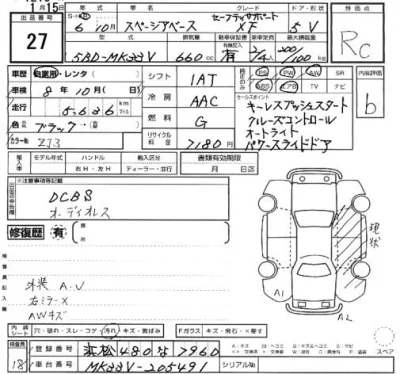 12月15日
出品番号
27
6年10月
スペーシアベース
セーフティサポート
XF
5V
ドア・形状
評価点
Rc
5BD-MK33V
排気量
660 cc
新車保証書
有
乗車定員
2/4人
最大積載量
200/100 kg
車歴
自家用・レンタ
車検 8年10月(日)
走行 5,636 km
色 ブラック
カラー番号
ZJ3
シフト
IAT
冷房
AAC
燃料
G
リサイクル料金
7180円
PS PW AW SR
ABS エアB TV ナビ
内装評価
b
セールスポイント
キーレスプッシュスタート
クルーズコントロール
オートライト
パワースライドドア
輸入車
モデル年式
ハンドル
右H・左H
輸入区分
ディーラー・並行
書類有効期限
月 日
※注意事項等記載
DCBS
オーディオレス
修復歴 有
検査員記入
外装 A.U
右ミラーX
AWキズ
現状
A1
A2
内装シート
穴・破れ・スレ・コゲ・汚れ・キズ・黄ばみ
Fガラス キズ・飛石・X要す
スペア
登録番号 浜松480な7960
車台番号 MK33V-205491
シリアル№